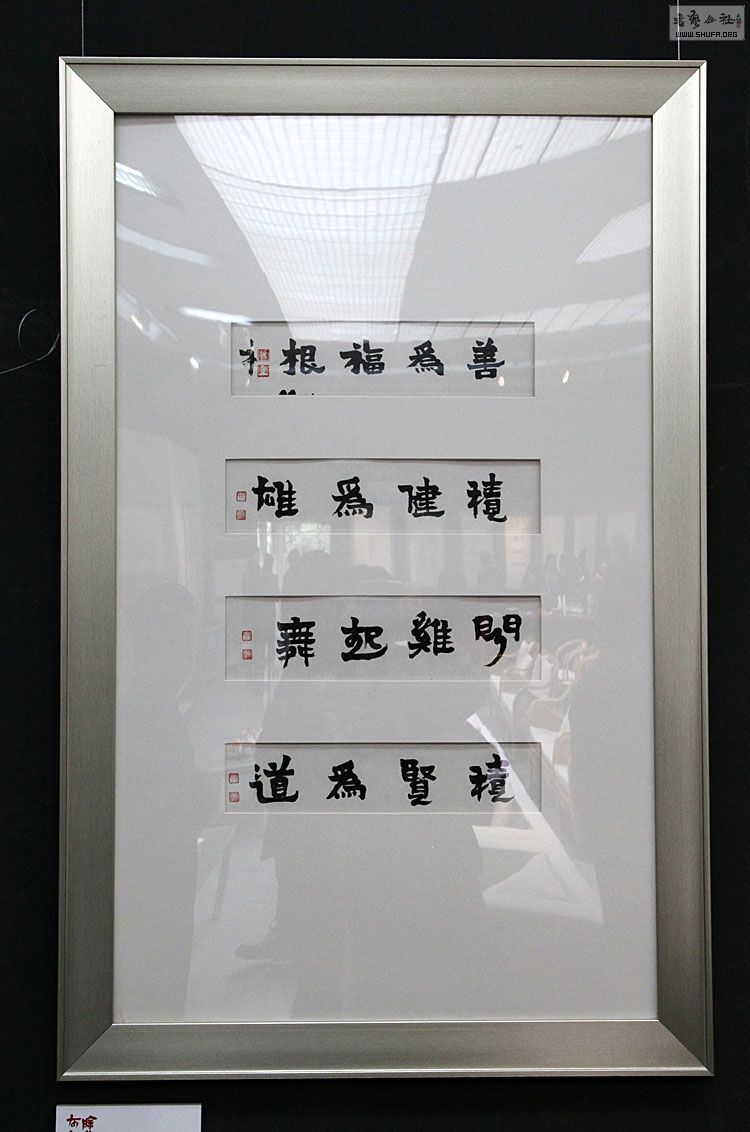 書藝公社
WWW.SHUFA.ORG
善爲福根
積健爲雄
聞雞起舞
積賢爲道